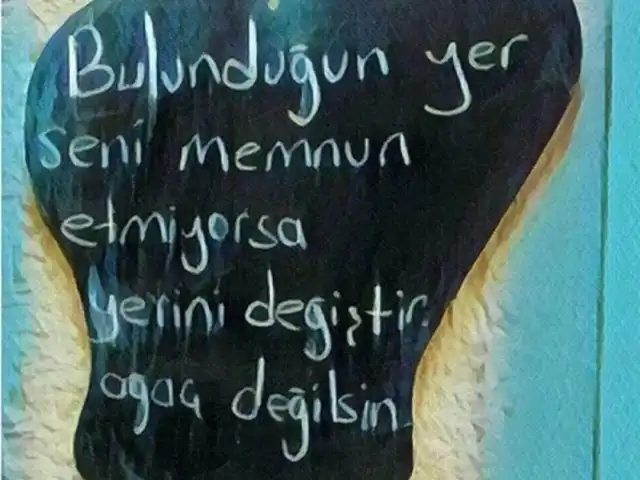 Bulunduğun yer
seni memnun
etmiyorsa
yerini değiştir.
ağaç değilsin